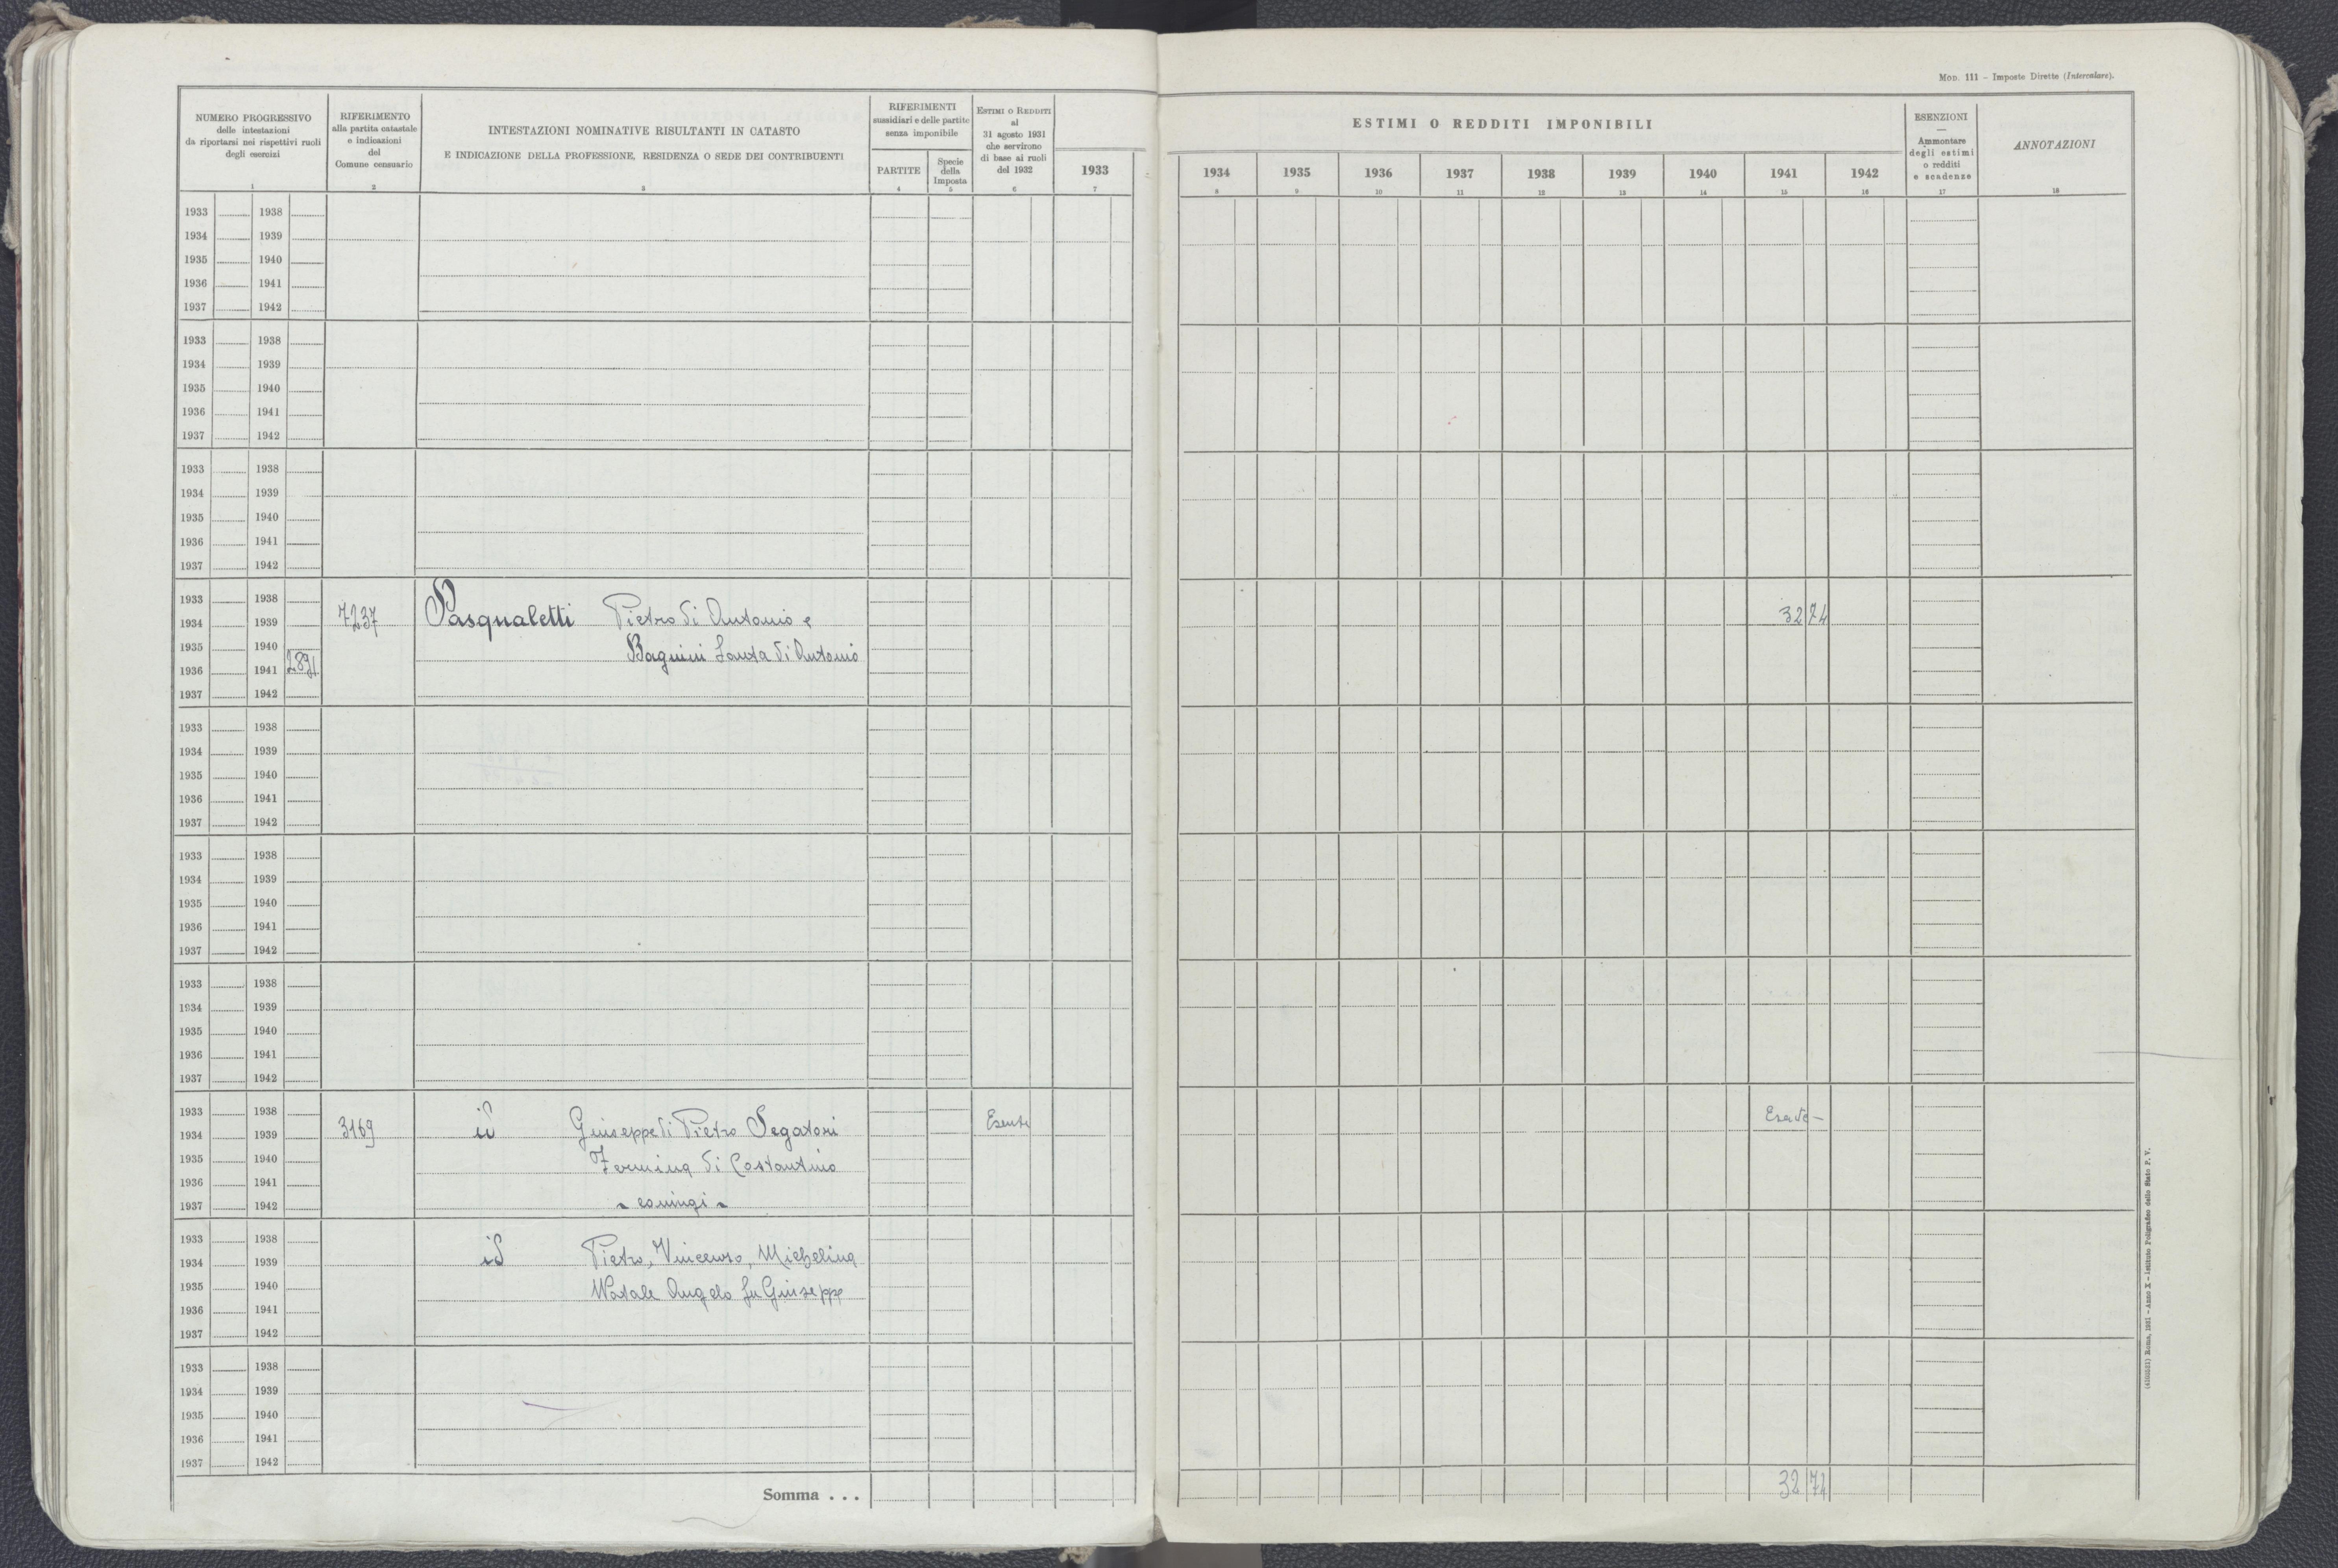 MOD. 111 – Imposte Dirette (Intercalare).
NUMERO PROGRESSIVO
delle intestazioni
da riportarsi nei rispettivi ruoli
degli esercizi
1
RIFERIMENTO
alla partita catastale
e indicazioni
del
Comune censuario
2
INTESTAZIONI NOMINATIVE RISULTANTI IN CATASTO
E INDICAZIONE DELLA PROFESSIONE, RESIDENZA O SEDE DEI CONTRIBUENTI
3
RIFERIMENTI
sussidiari e delle partite
senza imponibile
PARTITE
4
Specie
della
Imposta
5
ESTIMI O REDDITI
al
31 agosto 1931
che servirono
di base ai ruoli
del 1932
6
1933
7
ESTIMI O REDDITI IMPONIBILI
1934 1935 1936 1937 1938 1939 1940 1941 1942
8 9 10 11 12 13 14 15 16
ESENZIONI
—
Ammontare
degli estimi
o redditi
e scadenze
17
ANNOTAZIONI
18
1933 1938
1934 1939
1935 1940
1936 1941
1937 1942
1933 1938
1934 1939
1935 1940
1936 1941
1937 1942
1933 1938
1934 1939
1935 1940
1936 1941
1937 1942
1933 1938
1934 1939 7237 Pasqualetti Pietro di Antonio e 32 74
1935 1940 Bagnini Santa di Antonio
1936 1941 2891
1937 1942
1933 1938
1934 1939
1935 1940
1936 1941
1937 1942
1933 1938
1934 1939
1935 1940
1936 1941
1937 1942
1933 1938
1934 1939
1935 1940
1936 1941
1937 1942
1933 1938
1934 1939 3169 id Giuseppe di Pietro Segatori Esente
1935 1940 di Costantino
1936 1941
1937 1942 - coniugi -
1933 1938
1934 1939 id Pietro, Vincenzo, Michelina
1935 1940 Natale Angelo fu Giuseppe
1936 1941
1937 1942
1933 1938
1934 1939
1935 1940
1936 1941
1937 1942
Somma . . . 32 74
Roma, 1931 – Anno X – Istituto Poligrafico dello Stato P. V.